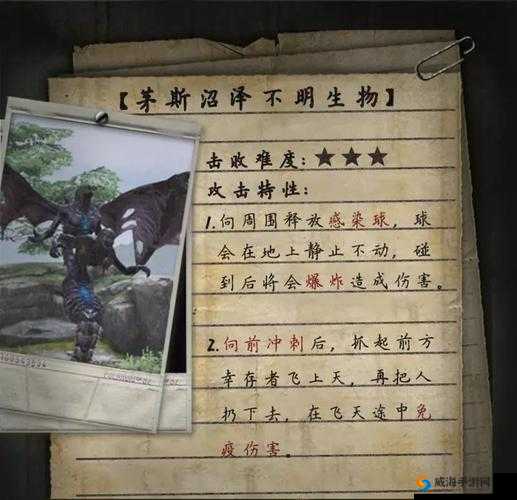 【茅斯沼泽不明生物】
击败难度:★★★
攻击特性:
1.向周围释放感染球,球
会在地上静止不动,碰
到后将会爆炸造成伤害。
2.向前冲刺后,抓起前方
幸存者飞上天,再把人
扔下去,在飞天途中免
疫伤害。
威海手游网